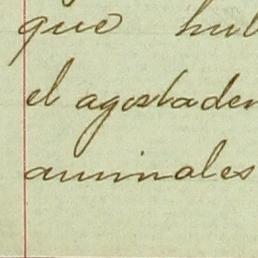 que hub
el agostader
animales